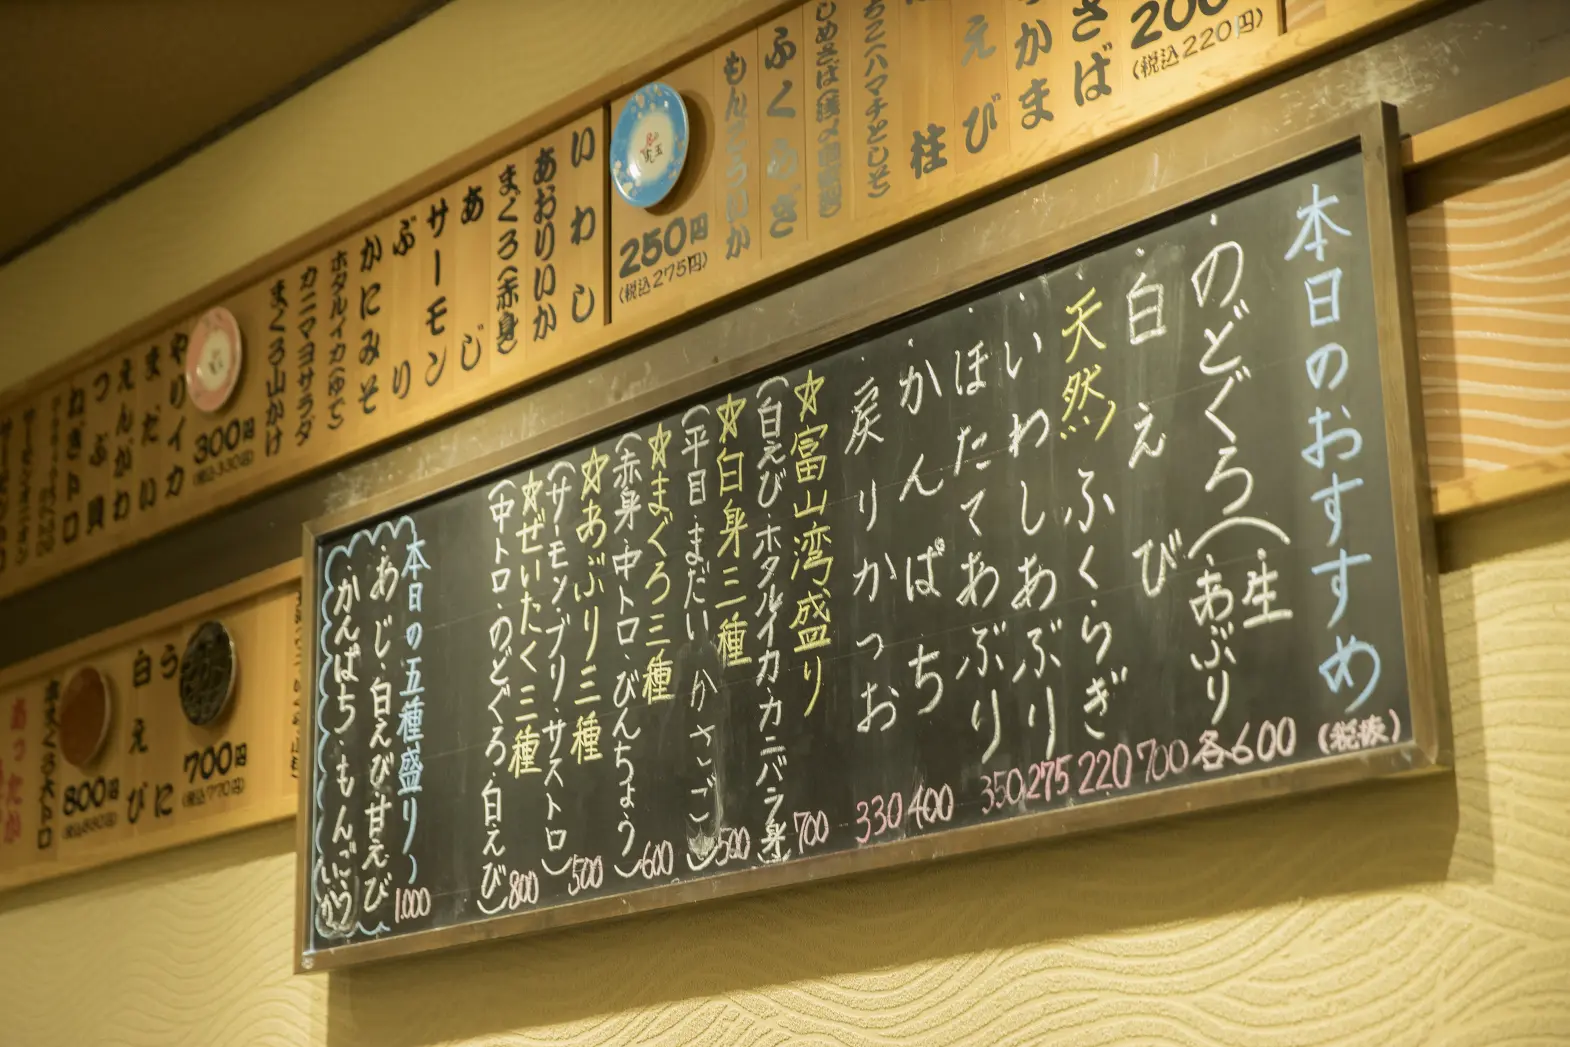 本日のおすすめ
(税抜)
・のどぐろ(・生
・あぶり
各600
・白えび
700
天然ふくらぎ
220
・いわしあぶり
275
・ほたてあぶり
350
・かんぱち
400
・戻りかつお
330
☆富山湾盛り
(白えび・ホタルイカ・カニバラ身)
700
☆白身三種
(平目・まだい かさご)
500
☆まぐろ三種
(赤身・中トロ・びんちょう)
600
☆あぶり三種
(サーモン・ブリ・サストロ)
500
☆ぜいたく三種
(中トロ・のどぐろ・白えび)
800
本日の五種盛り
・あじ・白えび・甘えび
・かんぱち・もんごういか
1,000
さば
200円
(税込220円)
かま
えび
柱
(ハマチとしそ)
しめさば
ふくらぎ
もんごういか
250円
(税込275円)
いわし
あおりいか
まぐろ(赤身)
あじ
サーモン
ぶり
かにみそ
ホタルイカ(ゆで)
カニマヨサラダ
まぐろ山かけ
300円
(税込330円)
やりイカ
まだい
えんがわ
つぶ貝
ねぎトロ
700円
(税込770円)
うに
白えび
800円
(税込880円)